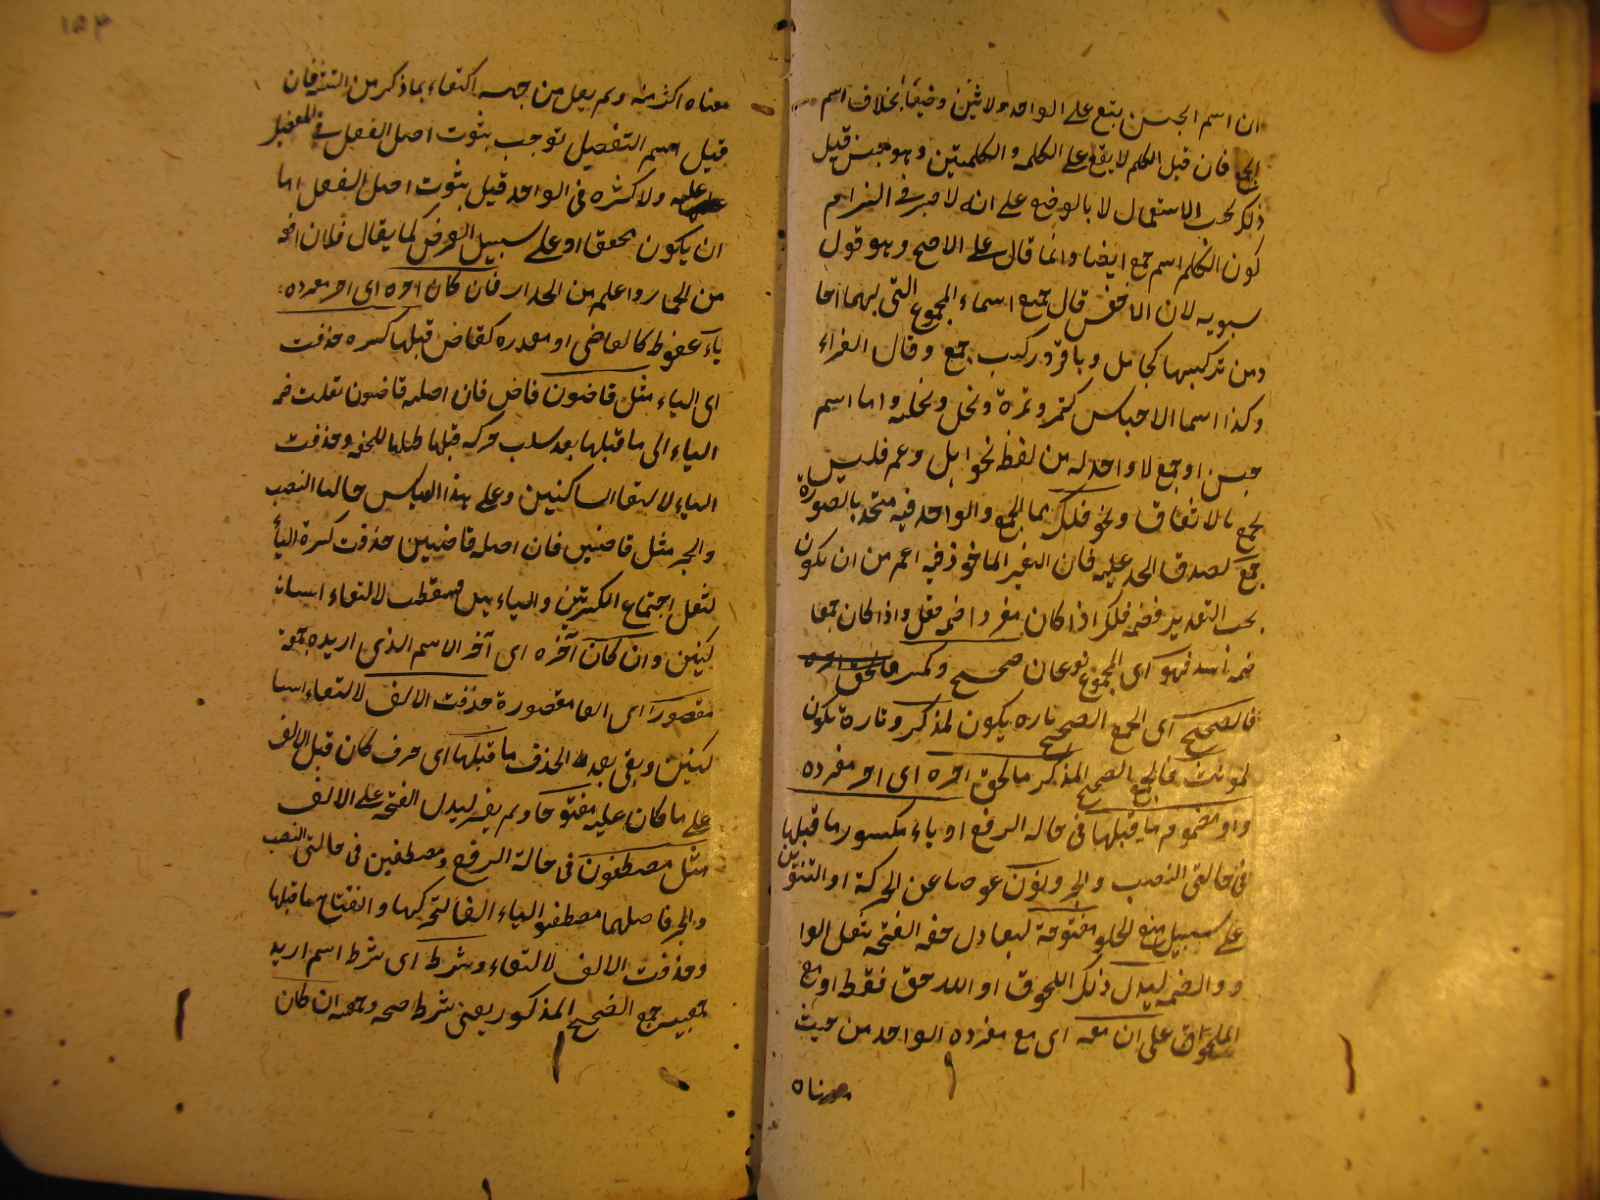 ان اسم الجنس يقع على الواحد والاثنين وضعا بخلاف اسم
الجمع فان قيل الكلم لا يقع على الكلمة والكلمتين وهو جنس قيل
ذلك بحسب الاستعمال لا بالوضع على انه لا ضير فى التزام
كون الكلم اسم جمع ايضا وانما قال على الاصح وهو قول
سيبويه لان الاخفش قال جميع اسماء الجموع التى لها آحا
د من تركيبها كجامل وباقر وركب جمع وقال الفراء
وكذا اسما الاجناس كتمر وتمرة ونخل ونخلة واما اسم
جنس او جمع لا واحد له من لفظه نحو ابل وغنم فليس
بجمع بالاتفاق ونحو فلك مما الجمع والواحد فيه متحد بالصورة
جمع لصدق الحد عليه فان التغير الماخوذ فيه اعم من ان يكون
بحسب التقدير فضمة فلك اذا كان مفردا ضمة قفل واذا كان جمعا
ضمة اسد فهو اى المجموع نوعان صحيح ومكسر
فالصحيح اى الجمع الصحيح تارة يكون لمذكر وتارة يكون
لمونث فالجمع الصحيح المذكر ما لحق آخره اى آخر مفرده
واو مضموم ما قبلها فى حالة الرفع او ياء مكسور ما قبلها
فى حالتى النصب والجر ونون عوضا عن الحركة او التنوين
على سبيل منع الخلو مفتوحة ليعادل خفة الفتحة ثقل الوا
و والضمة ليدل ذلك اللحوق او اللاحق فقط او مع
الملحوق على ان معه اى مع مفرده الواحد من حيث
معناه
١٥٣
معناه اكثر منه ولم يقل من جنسه اكتفاء بما ذكر من التثنية فان
قيل اسم التفضيل توجب ثبوت اصل الفعل فى المفضل
عليه ولا كثرة فى الواحد قيل ثبوت اصل الفعل اما
ان يكون محققا او على سبيل الفرض كما يقال فلان افقه
من الحمار واعلم من الجدار فان كان آخره اى آخر مفرده
ياء ملفوظ كالقاضى او مقدرة كقاض قبلها كسرة حذفت
اى الياء مثل قاضون قاض فان اصله قاضيون نقلت ضمة
الياء الى ما قبلها بعد سلب حركة قبلها طلبا للخفة وحذفت
الياء لالتقاء الساكنين وعلى هذا القياس حالتا النصب
والجر مثل قاضين فان اصله قاضيين حذفت كسرة الياء
لثقل اجتماع الكسرتين والياء بين فسقطت لالتقاء السا
كنين وان كان آخره اى آخر الاسم الذى اريد جمعه
مقصورا اى الفا مقصورة حذفت الالف لالتقاء السا
كنين وبقى بعد الحذف ما قبلها اى حرف كان قبل الالف
على ما كان عليه مفتوحا ولم يغير ليدل الفتحة على الالف
مثل مصطفون فى حالة الرفع ومصطفين فى حالتى النصب
والجر فاصلهما مصطفيو الياء الفا لتحركها وانفتاح ما قبلها
وحذفت الالف لالتقاء وشرطه اى شرط اسم اريد
جمعه جمع الصحيح المذكور يعنى شرط صحة وجمعه ان كان